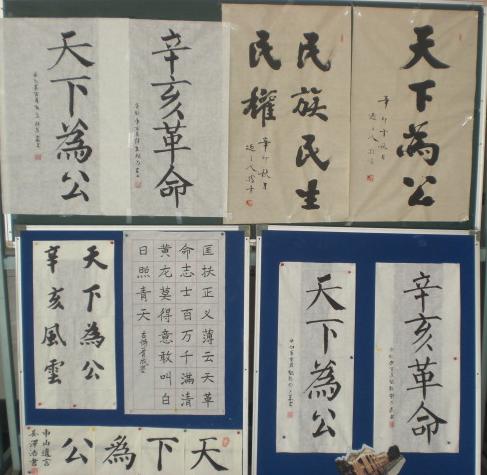 天下為公
辛亥革命
民族民生
民權
辛卯秋日
天下為公
天下為公
辛亥風雲
匡扶正义薄云天革
命志士百万千滿清
黄龙莫得意敢叫白
日照青天
天下為公
中山遺言
天下為公
辛亥革命